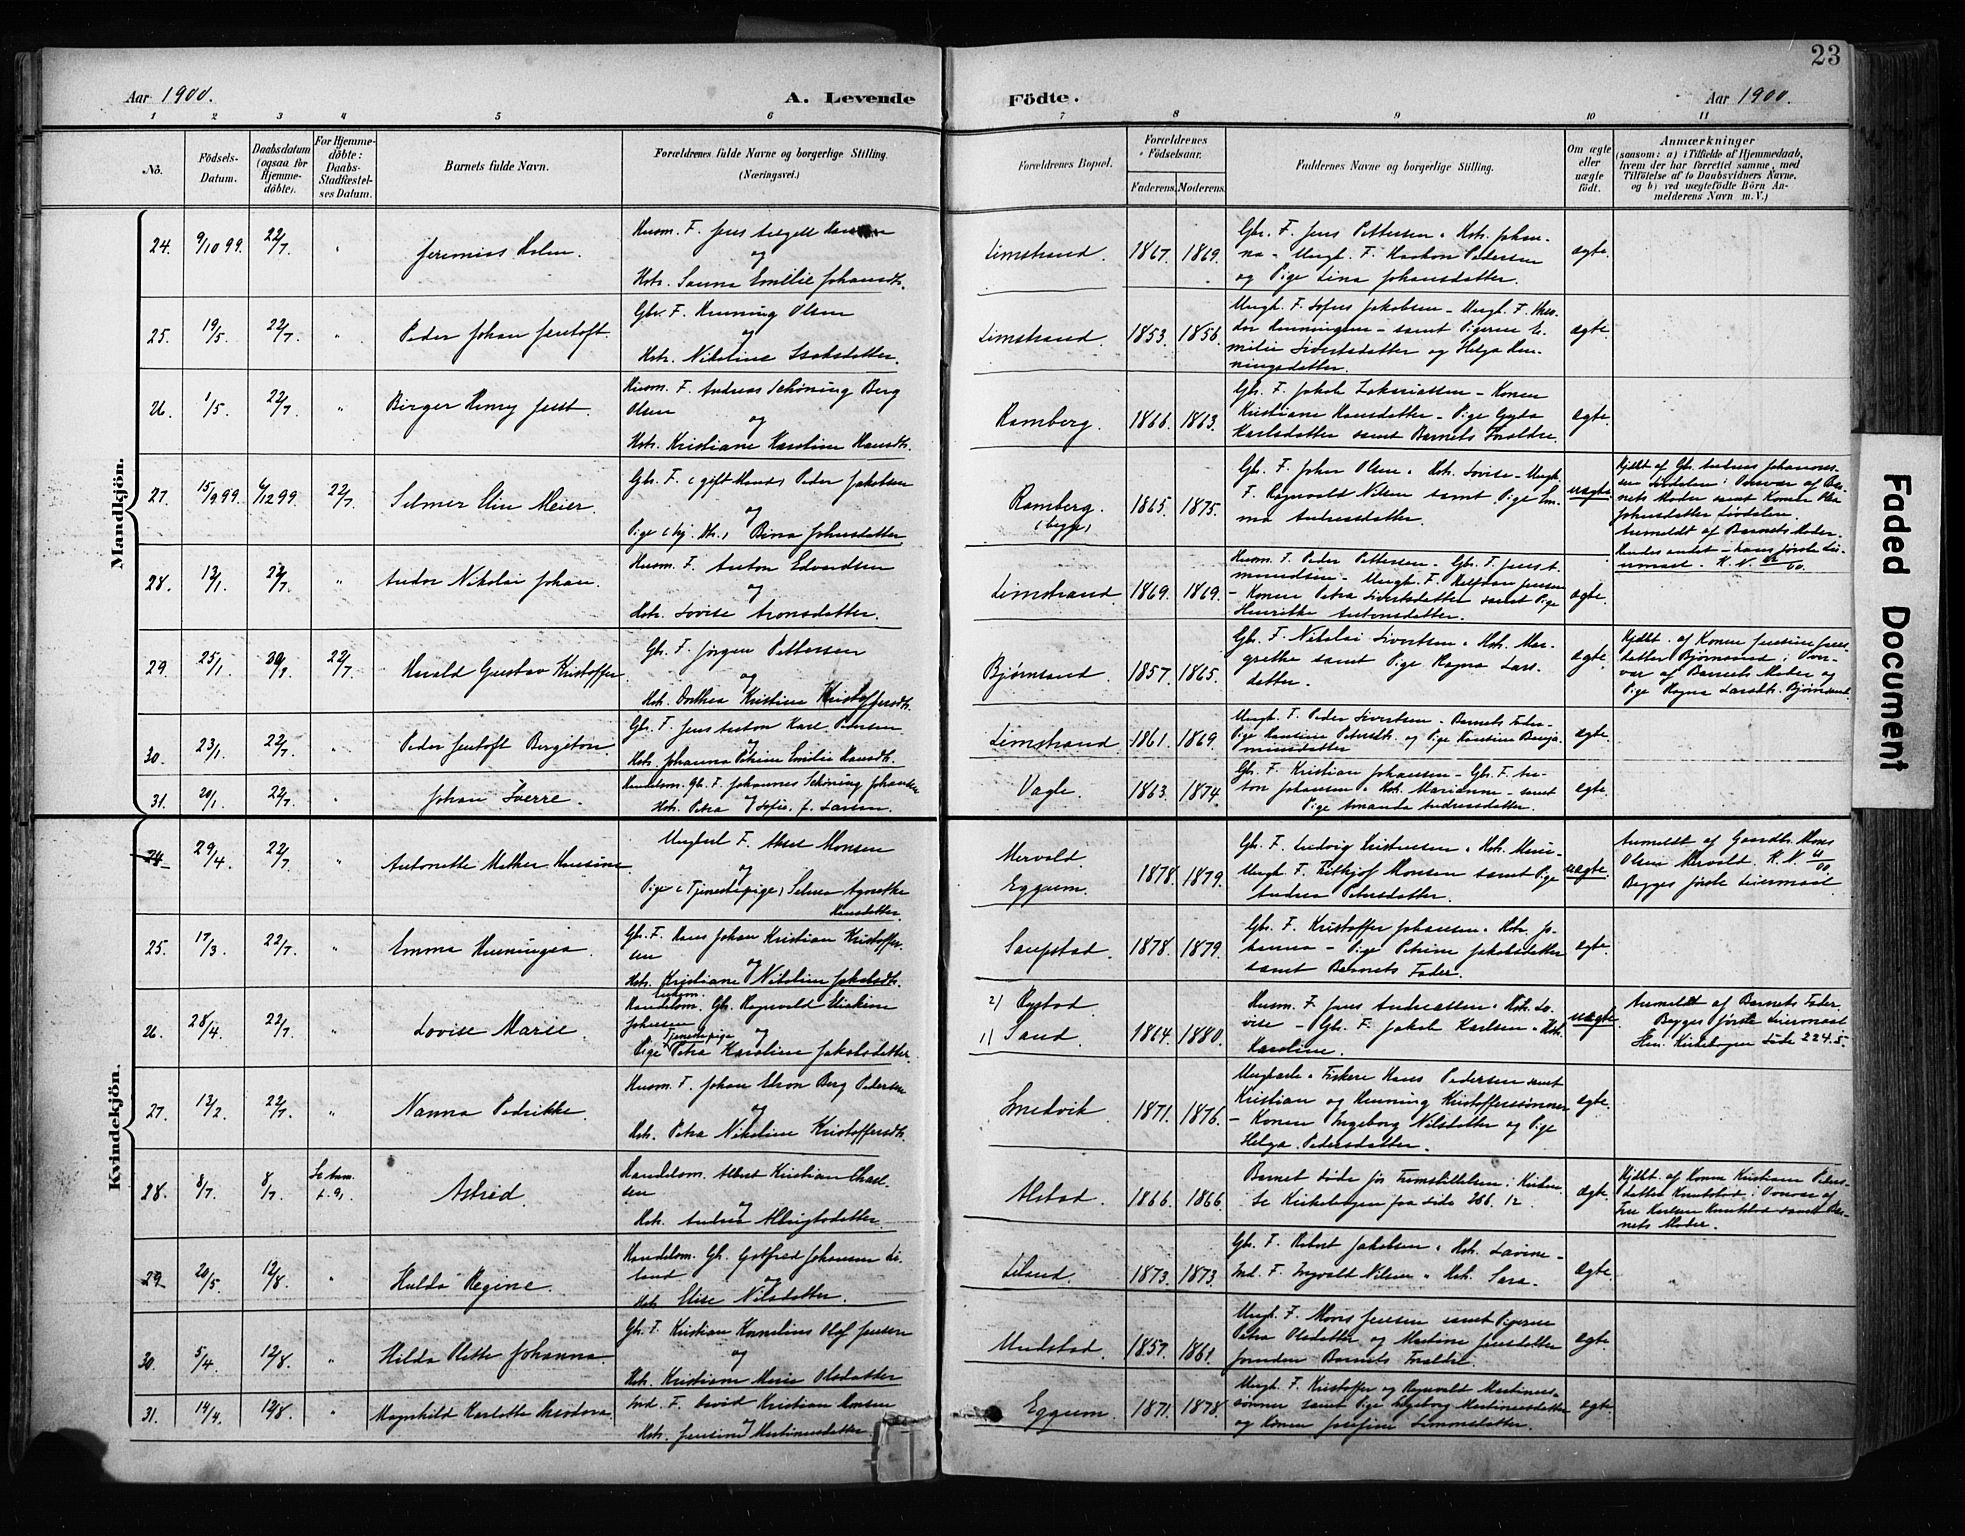 23
Aar 1900.
A. Levende
Födte.
Aar 1900.
1 2 3 4 5 6 7 8 9 10 11
No.
Födsels-
Datum.
Daabsdatum
(ogsaa for
Hjemme-
döbte).
For Hjemme-
döbte:
Daabs-
Stadfæstel-
ses Datum.
Barnets fulde Navn.
Forældrenes fulde Navne og borgerlige Stilling.
(Næringsvei.)
Forældrenes Bopæl.
Forældrenes
Födselsaar.
Faderens.
Moderens.
Faddernes Navne og borgerlige Stilling.
Om ægte
eller
uægte
födt.
Anmærkninger
(saasom: a) i Tilfælde af Hjemmedaab,
hvem der har forrettet samme, med
Tilföielse af to Daabsvidners Navne,
og b) ved uægtefödte Börn An-
melderens Navn m. V.)
Mandkjön.
24. 9/10 99. 22/7. " Jeremias Holm.
Husm. F. Jens
og
Hstr. Sanna Emilie Johansdtr.
Limstrand. 1867. 1869.
Gbr. F. Jens Pettersen o. Hstr. Johan-
na - Ungk. F. Haakon Petersen
og Pige Lina Johansdatter.
ægte.
25. 19/5. 22/7. " Peder Johan Jentoft.
Gbr. F. Henning Olsen
og
Hstr. Nikoline Isaksdatter.
Limstrand. 1853. 1856.
Ungk. F. Sofus Jakobsen - Ungk. F. Theo-
dor Henningsen - samt Pigerne E-
milie Sivertsdatter og Helga Hen-
ningsdatter.
ægte.
26. 1/5. 22/7. " Birger Henry Just.
Husm. F. Andreas Schöning Berg
Olsen
og
Hstr. Kristiane Karoline Hansdtr.
Ramberg. 1866. 1863.
Gbr. F. Jakob Zakariassen - Konen
Kristiane Hansdatter - Pige Gyda
Karlsdatter samt Barnets Forældre.
ægte.
27. 15/9 99. 6/12 99 22/7. Selmer Elin Meier.
Gbr. F. (gift Mand) Peder Jakobsen
og
Pige (hj. dtr.) Bina Johnsdatter
Ramberg.
(begge)
1865. 1875.
Gbr. F. John Olsen o. Hstr. Lovise - Ungk.
F. Ragnvald Nilsen samt Pige Em-
ma Andreasdatter.
uægte
Hjdbt. af Gbr. Andreas Johannes-
sen i Overvær af Bar-
nets Moder samt Konen
Johnsdatter
Anmeldt af Barnets Moder.
Hendes andet - hans første Lei-
ermaal. K. N.
28. 12/1. 22/7. " Andor Nikolai Johan.
Husm. F. Anton Edvardsen
og
Hstr. Lovise Aronsdatter.
Limstrand 1869. 1869.
Husm. F. Peder Pettersen - Gbr. F. Jens A-
mundsen - Ungk. F. Halfdan Jensen
- Konen Petra Sivertsdatter samt Pige
Henrikke Antonsdatter.
ægte.
29. 25/1. 22/7. Harald Gustav Kristoffer.
Gbr. F. Jørgen Pettersen
og
Hstr. Dorthea Kristine Kristoffersdtr.
Bjørnsand. 1857. 1865.
Gbr. F. Nikolai Sivertsen o. Hstr. Mar-
grethe samt Pige Ragna Lars-
datter.
ægte.
Hjdbt. af Konen Jensine Jens-
datter Bjørnsand i Over-
vær af Barnets Moder og
Pige Ragna Larsdtr. Bjørnsand.
30. 23/1. 22/7. " Peder Jentoft Bergiton.
Gbr. F. Jens Anton Karl Petersen
og
Hstr. Johanna Petrine Emilie Hansdtr.
Limstrand. 1861. 1869.
Ungk. F. Peder Sivertsen - Barnets Fader -
Pige Hansine Petersdtr. og Pige Hansine Benja-
minsdatter
ægte.
31. 20/1. 22/7. " Johan Sverre.
Handelsm. Gbr. F. Johannes Schöning Johansen
og
Hstr. Petra Sofie, f. Larsen.
Vagle. 1863. 1874.
Gbr. F. Kristian Johansen - Gbr. F. An-
ton Johansen o. Hstr. Marianne - samt
Pige Amanda Andreasdatter.
ægte.
Kvindekjön.
24 29/4. 22/7. " Antonette Mathea Hansine
Ungkarl F. Aksel Monsen
og
Pige (Tjenestepige) Selma Agnethe
Hansdatter.
Mervold.
Eggum.
1878. 1879.
Gbr. F. Ludvig Kristensen o. Hstr. Marie -
Ungk. F. Fritkjof Monsen samt Pige
Andrea Petersdatter.
uægte.
Anmeldt af Gaardbr. Mons
Olsen Mervold. K. N.
Begges første Leiermaal
25. 17/3. 22/7. " Emma Henningea
Gbr. F. Hans Johan Kristian Kristoffer-
sen
og
Hstr. Kristiane Nikoline Jakobsdtr.
Saupstad. 1878. 1879.
Gbr. F. Kristoffer Johansen o. Hstr. Jo-
hanna - Pige Petrine Jakobsdatter
samt Barnets Fader.
ægte.
26. 28/4. 22/7. " Lovise Marie
Enkem.
Handelsm. Gbr. Ragnvald
Johansen
og
Tjenestepige
Pige Petra Karoline Jakobsdatter.
2) Rystad.
1) Sand.
1864. 1880.
Husm. F. Jens Andreassen o. Hstr. Lo-
vise - Gbr. F. Jakob Karlsen o. Hstr.
Karoline.
uægte.
Anmeldt af Barnets Fader
Begges første Leiermaal
Kirkebogen Side 224.5.
27. 12/2. 22/7. " Nanna Pedrikke.
Husm. F. Johan Elvon Berg Pedersen
og
Hstr. Petra Nikoline Kristoffersdtr.
Smedvik. 1871. 1876.
Ungkarle o. Fiskere Hans Pedersen samt
Kristian og Henning Kristofferssønner
- Konen Ingeborg Nilsdatter og Pige
Helga Pedersdatter.
ægte.
28. 8/7. 8/7. Se Anm. Astrid
Handelsm. Albert Kristian
og
Hstr. Andrea Albrigtsdatter
Alstad. 1866. 1866
Barnet døde før Fremstillelsen i Kirken.
Se Kirkebogen paa Side 266. 12
ægte.
Hjdbt. af Konen Kristiane Peders-
datter Knutstad i Overvær af
Fru Karlsen Knutstad samt Bar-
nets Moder.
29. 20/5. 12/8. " Hulda Regine.
Handelsm. Gbr. Gotfred Johansen Li-
land
og
Hstr. Elise Nilsdatter.
Liland. 1873. 1873.
Gbr. F. Robert Jakobsen o. Hstr. Lavine -
Ind. F. Ingvald Nilsen o. Hstr. Sara.
ægte.
30. 5/4. 12/8. " Hilda Olette Johanna.
Gbr. F. Kristian Kornelius Olaf Jensen
og
Hstr. Kristiane Marie Olsdatter
Undstad. 1857. 1861.
Ungk. F. Mons Jensen samt Pigerne
Petra Olsdatter og Martine Jensdatter
foruden Barnets Forældre.
ægte.
31. 14/4. 12/8. " Magnhild Karlotte Theodora.
Ind. F. David Kristian Monsen
og
Hstr. Jensine Martinusdatter.
Eggum. 1871. 1878.
Ungk. F. Kristoffer og Ragnvald Martinus-
sønner samt Pige Ingeborg Martinusdatter
og Konen Josefine Simonsdatter.
ægte.
Faded Document